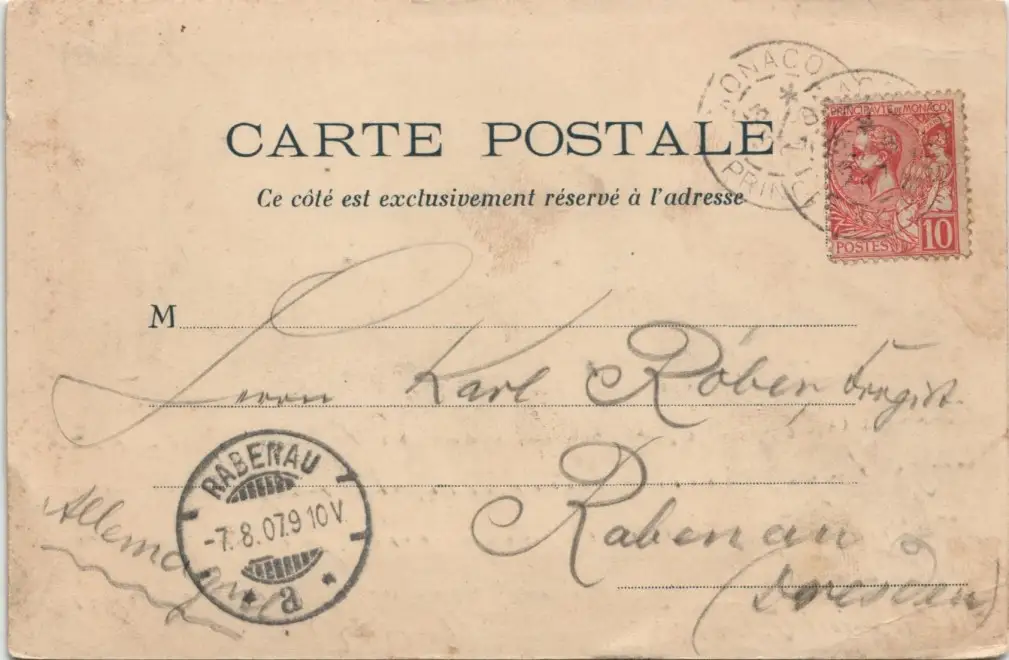 CARTE POSTALE
Ce côté est exclusivement réservé à l'adresse
MONACO
PRINC
PRINCIPAUTÉ DE MONACO
POSTES
10
M
Herrn Karl Röber, Drogist.
Rabenau
(Dresden)
Allemagne
RABENAU
-7.8.07.9 10V.
* a *